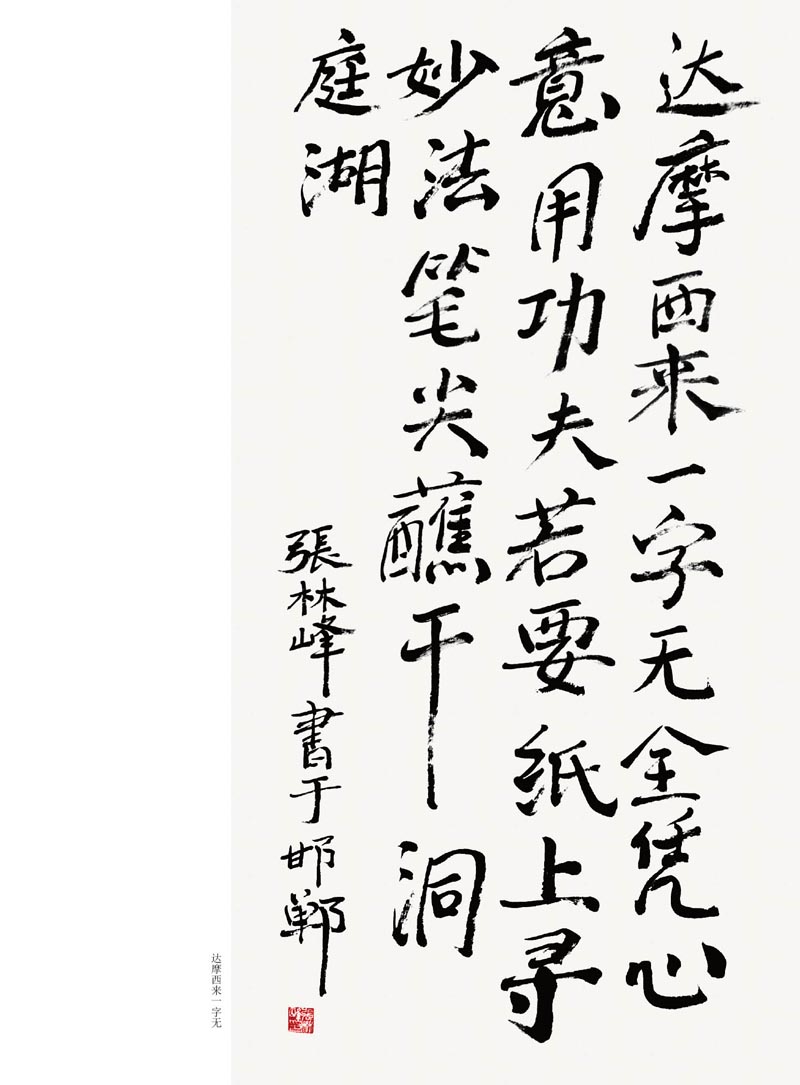 达摩西来一字无全凭心
意用功夫若要纸上寻
妙法笔尖蘸干洞
庭湖
張林峰書于邯郸
达摩西来一字无